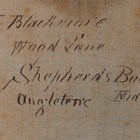 Blackvine
Wood Lane
Shepherd's Bu
Angleterre